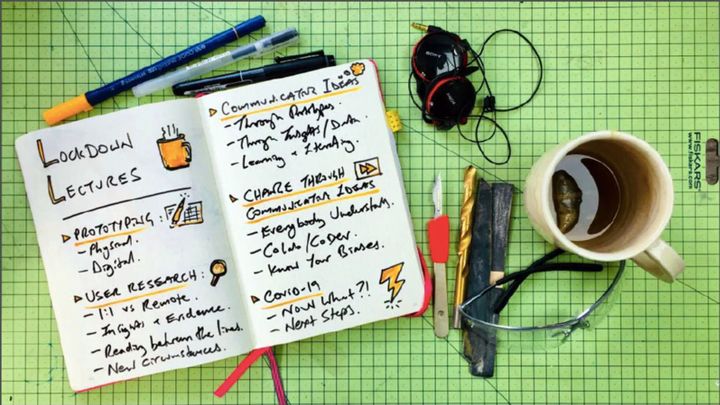 LOCKDOWN
LECTURES
PROTOTYPING:
- Physical.
- Digital.
USER RESEARCH:
- 1:1 vs Remote.
- Insights + Evidence.
- Reading between the lines.
- New Circumstances.
COMMUNICATING IDEAS
- Through Prototypes.
- Through Insights/Data.
- Learning + Iterating.
CHANGE THROUGH
COMMUNICATING IDEAS
- Everybody Understands.
- Colab/CoDes.
- Know Your Biases.
COVID-19
- Now What?!
- Next Steps.
FISKARS
www.fiskars.com